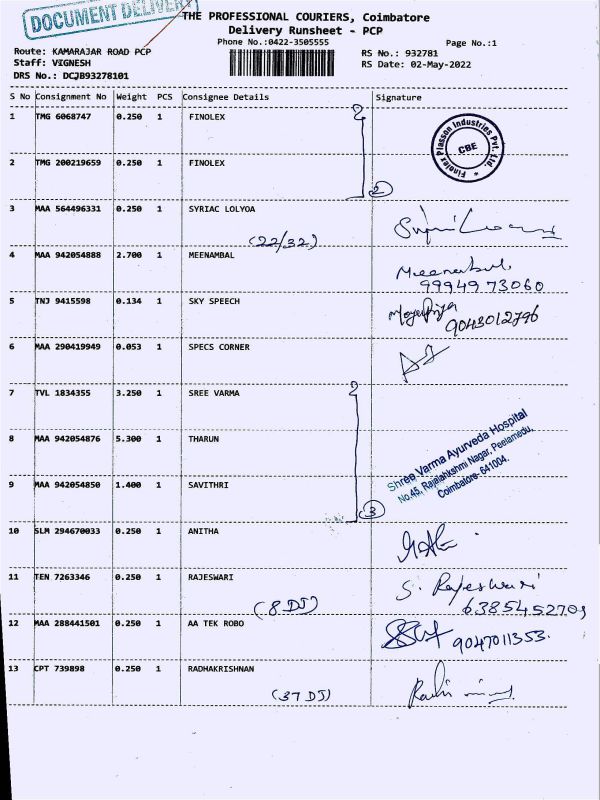 DOCUMENT DELIVERY
THE PROFESSIONAL COURIERS, Coimbatore
Delivery Runsheet - PCP
Phone No.:0422-3505555
Page No.:1
Route: KAMARAJAR ROAD PCP
RS No.: 932781
Staff: VIGNESH
RS Date: 02-May-2022
DRS No.: DCJB93278101
S No Consignment No Weight PCS Consignee Details Signature
1 TMG 6068747 0.250 1 FINOLEX
Finolex Plasson Industries Pvt. Ltd.
CBE
2 TMG 200219659 0.250 1 FINOLEX
2
3 MAA 564496331 0.250 1 SYRIAC LOLYOA
(22/32)
4 MAA 942054888 2.700 1 MEENAMBAL
Meenambal
99949 73060
5 TNJ 9415598 0.134 1 SKY SPEECH
9043012796
6 MAA 290419949 0.053 1 SPECS CORNER
7 TVL 1834355 3.250 1 SREE VARMA
8 MAA 942054876 5.300 1 THARUN
Shree Varma Ayurveda Hospital
No.45, Rajalahkshmi Nagar, Peelamedu,
Coimbatore- 641004.
9 MAA 942054850 1.400 1 SAVITHRI
3
10 SLM 294670033 0.250 1 ANITHA
11 TEN 7263346 0.250 1 RAJESWARI
S. Rajeshwari
(8 DJ)
6385452709
12 MAA 288441501 0.250 1 AA TEK ROBO
9047011353.
13 CPT 739898 0.250 1 RADHAKRISHNAN
(37 DJ)